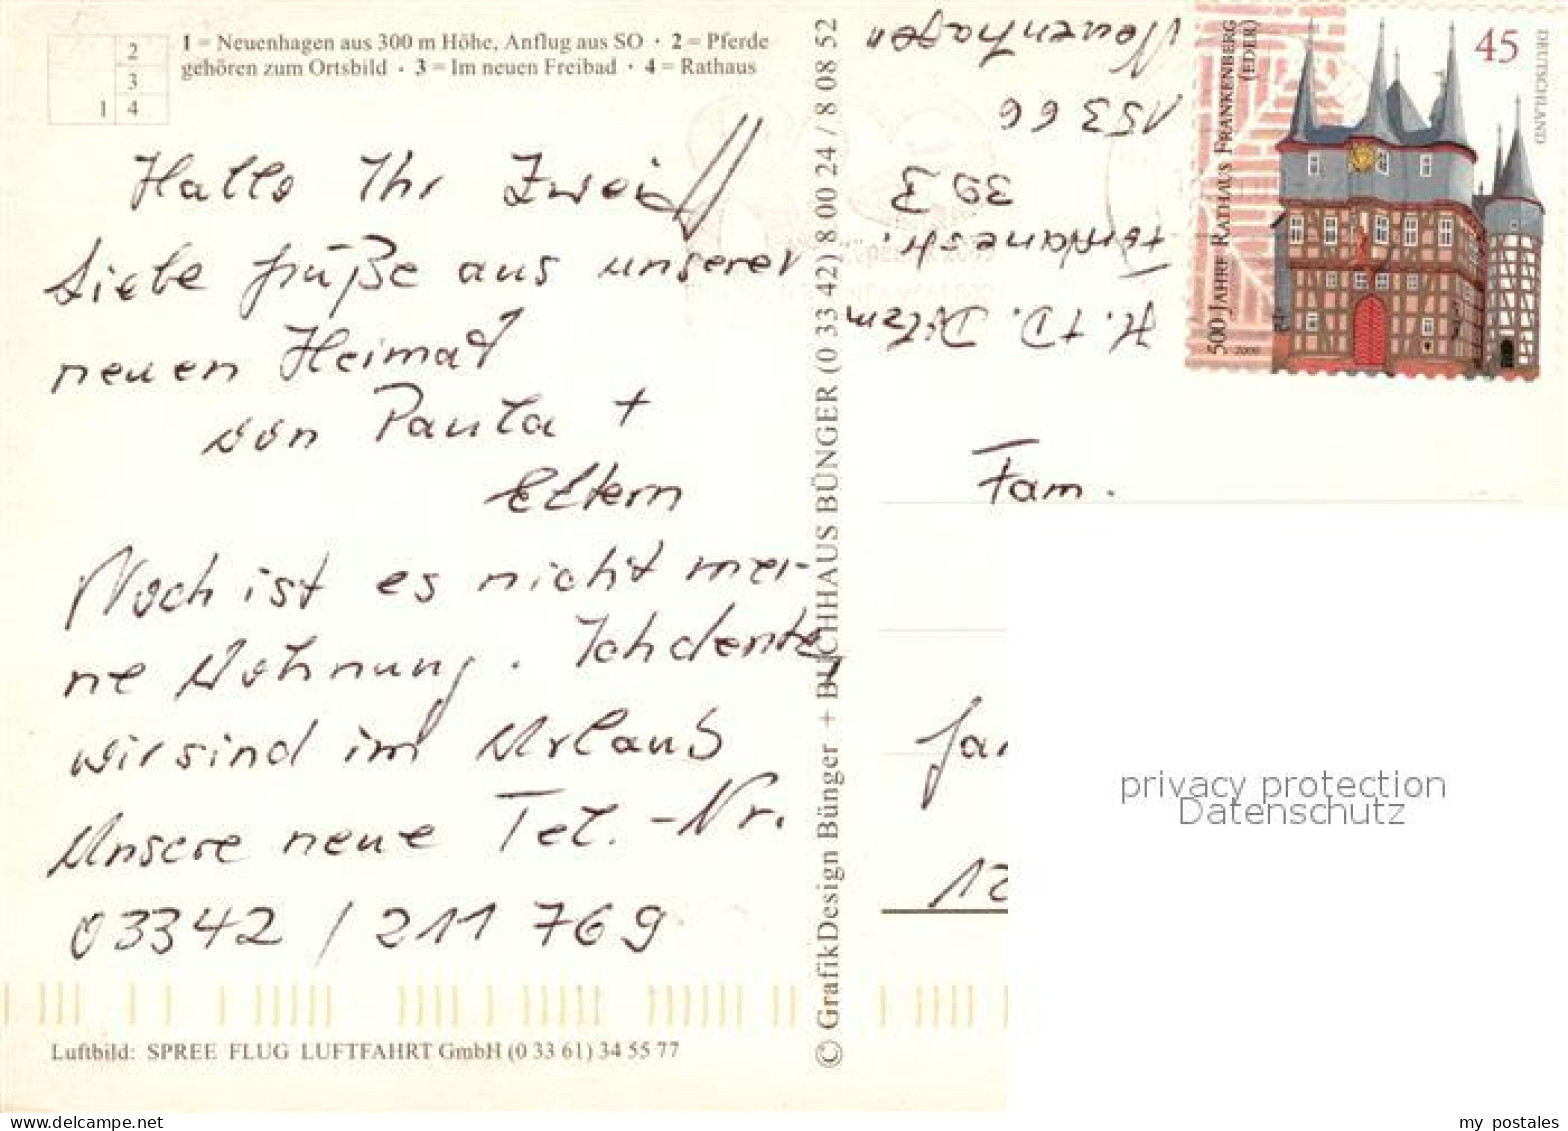 1 = Neuenhagen aus 300 m Höhe, Anflug aus SO · 2 = Pferde
gehören zum Ortsbild · 3 = Im neuen Freibad · 4 = Rathaus
2
3
1 4
Hallo Ihr Zwei!!
Liebe Grüße aus unserer
neuen Heimat
von Paula +
Eltern
Noch ist es nicht mei-
ne Wohnung. Ich denke,
wir sind im Urlaub
Unsere neue Tel.-Nr.
03342 / 211 769
Luftbild: SPREE FLUG LUFTFAHRT GmbH (0 33 61) 34 55 77
© GrafikDesign Bünger + BUCHHAUS BÜNGER (0 33 42) 8 00 24 / 8 08 52
H. + D.
39 3
15366
Neuenhagen
500 JAHRE RATHAUS FRANKENBERG
(EDER)
2009
45
DEUTSCHLAND
Fam.
Jan
12
privacy protection
Datenschutz
my postales